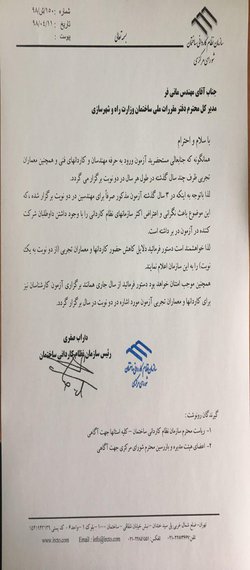 بسمه تعالی
شماره: ۹۸/ش/۱۵۰
تاریخ: ۹۸/۰۴/۱۱
پیوست:
سازمان نظام کاردانی ساختمان
شورای مرکزی
جناب آقای مهندس مانی فر
مدیر کل محترم دفتر مقررات ملی ساختمان وزارت راه و شهرسازی
با سلام و احترام
همانگونه که جنابعالی مستحضرید آزمون ورود به حرفه مهندسان و کاردانهای فنی و همچنین معماران
تجربی ظرف چند سال گذشته در طول هر سال در دو نوبت برگزار می گردد.
لذا باتوجه به اینکه در ۳ سال گذشته آزمون مذکور صرفاً برای مهندسین در دو نوبت برگزار شده که
این موضوع باعث نگرانی و اعتراض اکثر سازمانهای نظام کاردانی را با وجود داشتن داوطلبان شرکت
کننده در آزمون در بر داشته است.
لذا خواهشمند است دستور فرمائید دلایل کاهش حضور کاردانها و معماران تجربی (از دو نوبت به یک
نوبت) را به این سازمان اعلام نمایند.
همچنین موجب امتنان خواهد بود دستور فرمائید از سال جاری همانند برگزاری آزمون کارشناسان نیز
برای کاردانها و معماران تجربی آزمون مورد اشاره در دو نوبت در سال برگزار گردد.
داراب صفری
رئیس سازمان نظام کاردانی ساختمان
سازمان نظام کاردانی ساختمان
شورای مرکزی
گیرندگان رونوشت:
۱- ریاست محترم سازمان نظام کاردانی ساختمان – کلیه استانها جهت آگاهی
۲- اعضای هیئت مدیره و بازرسین محترم شورای مرکزی جهت آگاهی
Email : info@ircto.com
www.ircto.com